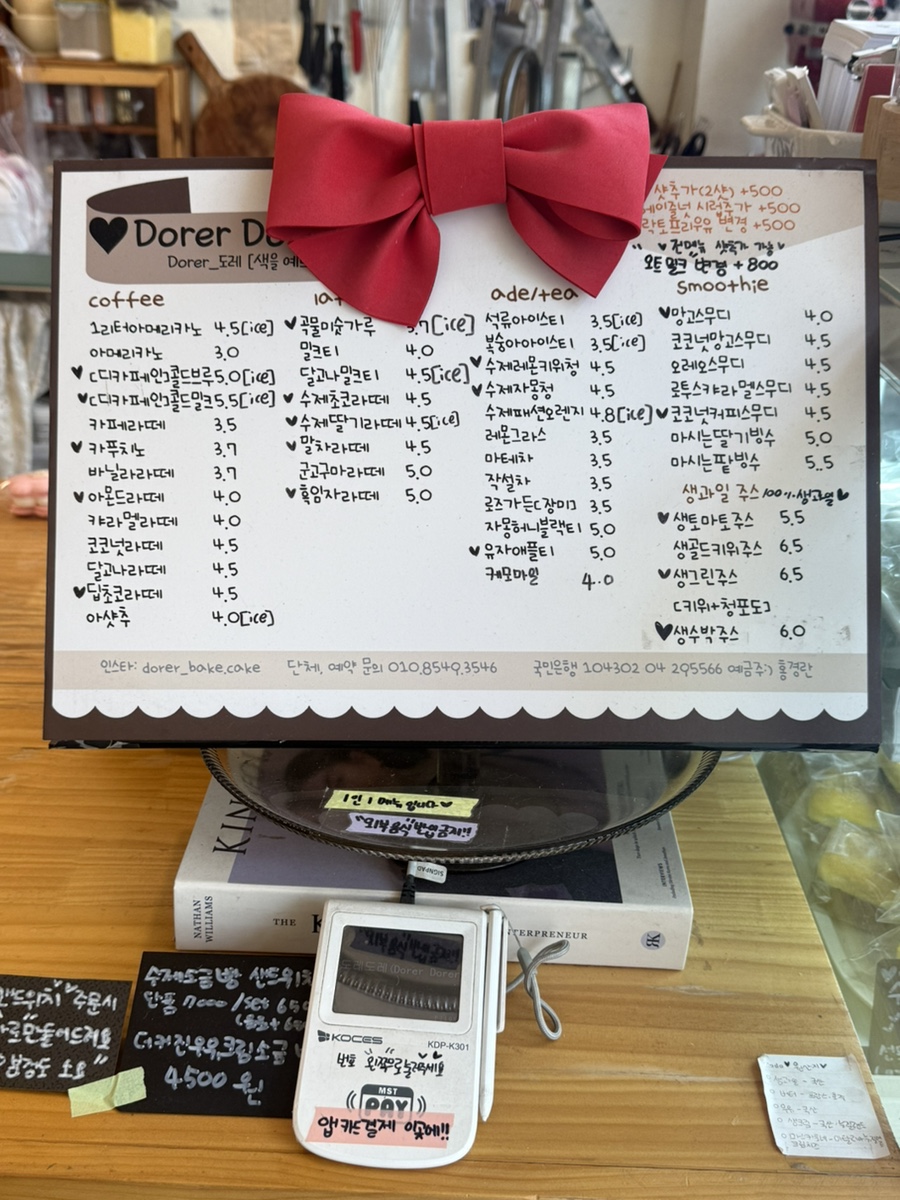 샷추가(2샷) +500
시럽추가 +500
락토프리우유 변경 +500
오트밀크 변경 +800
Dorer
Dorer_도레
coffee
1리터아메리카노 4.5[ice]
아메리카노 3.0
♥ [디카페인]콜드브루 5.0[ice]
♥ [디카페인]콜드밀크 5.5[ice]
카페라떼 3.5
♥ 카푸치노 3.7
바닐라라떼 3.7
♥ 아몬드라떼 4.0
캬라멜라떼 4.0
코코넛라떼 4.5
달고나라떼 4.5
♥ 딥초코라떼 4.5
아샷추 4.0[ice]
♥ 곡물미숫가루 3.7[ice]
밀크티 4.0
달고나밀크티 4.5[ice]
♥ 수제초코라떼 4.5
♥ 수제딸기라떼 4.5[ice]
♥ 말차라떼 4.5
군고구마라떼 5.0
♥ 흑임자라떼 5.0
ade/tea
석류아이스티 3.5[ice]
복숭아아이스티 3.5[ice]
♥ 수제레몬키위청 4.5
♥ 수제자몽청 4.5
수제패션오렌지 4.8[ice]
레몬그라스 3.5
마테차 3.5
작설차 3.5
로즈가든[장미] 3.5
자몽허니블랙티 5.0
♥ 유자애플티 5.0
케모마일 4.0
smoothie
♥ 망고스무디 4.0
코코넛망고스무디 4.5
오레오스무디 4.5
로투스캬라멜스무디 4.5
♥ 코코넛커피스무디 4.5
마시는딸기빙수 5.0
마시는팥빙수 5.5
생과일 주스 100% 생과일 ♥
♥ 생토마토주스 5.5
생골드키위주스 6.5
♥ 생그린주스 6.5
[키위+청포도]
♥ 생수박주스 6.0
인스타: dorer_bake.cake 단체, 예약 문의 010.8549.3546 국민은행 104302 04 295566 예금주:) 홍경란
1인 1메뉴 입니다 ♥
"외부음식 반입금지!!
SIGNPAD
NATHAN WILLIAMS
THE
KOCES
KDP-K301
번호 왼쪽으로 눌러주세요
MST
PAY
앱 카드결제 이곳에!!
주문시
수제소금빵 샌드위치
단품 7000 /set
4500 원